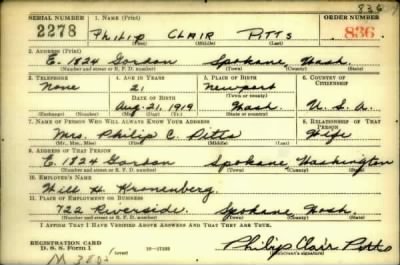 836
SERIAL NUMBER 1. NAME (Print) ORDER NUMBER
2278 PHILIP CLAIR PITTS 836
(First) (Middle) (Last)
2. ADDRESS (Print)
E. 1824 Gordon Spokane, Wash.
(Number and street or R. F. D. number) (Town) (County) (State)
3. TELEPHONE 4. AGE IN YEARS 5. PLACE OF BIRTH 6. COUNTRY OF CITIZENSHIP
None 21 Newport
DATE OF BIRTH (Town or county)
Aug. 21, 1919 Wash. U.S.A.
(Mo.) (Day) (Yr.) (State or country)
7. NAME OF PERSON WHO WILL ALWAYS KNOW YOUR ADDRESS 8. RELATIONSHIP OF THAT PERSON
Mrs. Philip C. Pitts Wife
(Mr., Mrs., Miss) (First) (Middle) (Last)
9. ADDRESS OF THAT PERSON
E. 1824 Gordon Spokane Washington
(Number and street or R. F. D. number) (Town) (County) (State)
10. EMPLOYER'S NAME
Will H. Kronenberg.
11. PLACE OF EMPLOYMENT OR BUSINESS
722 Riverside. Spokane Wash.
(Number and street or R. F. D. number) (Town) (County) (State)
I AFFIRM THAT I HAVE VERIFIED ABOVE ANSWERS AND THAT THEY ARE TRUE.
REGISTRATION CARD
D. S. S. Form 1 Philip Clair Pitts
(Registrant's signature)